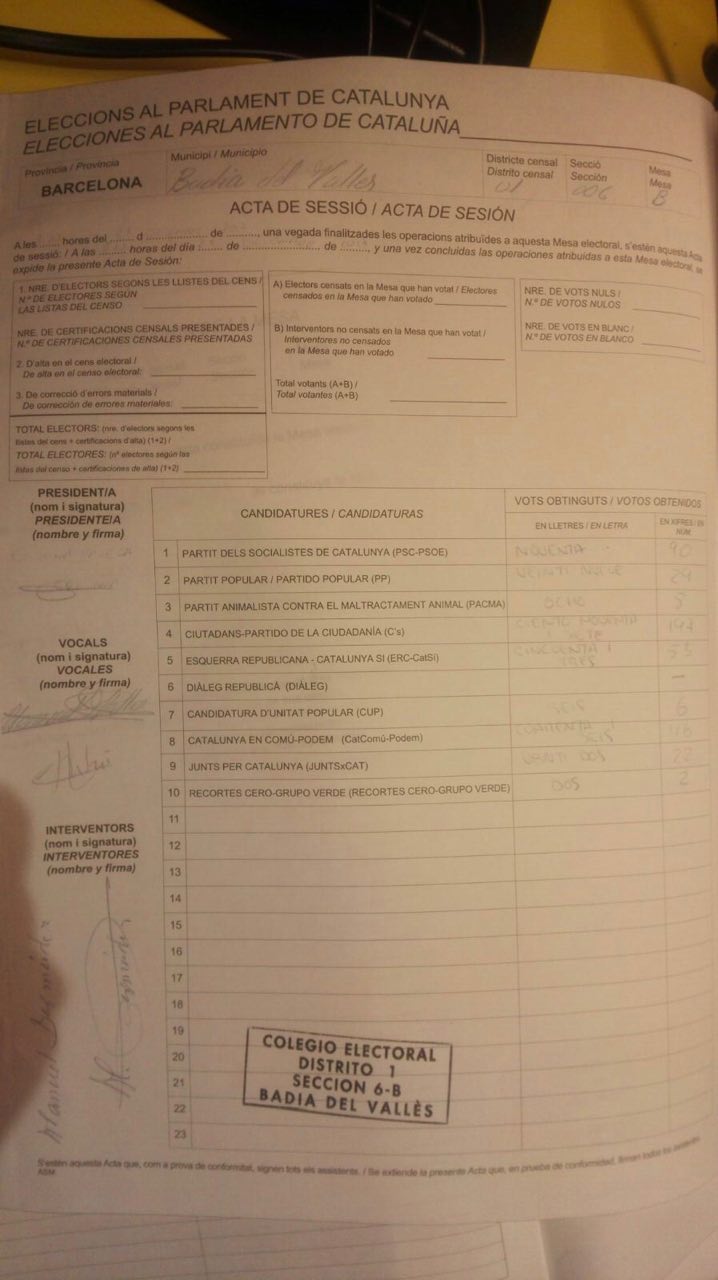 ELECCIONS AL PARLAMENT DE CATALUNYA
ELECCIONES AL PARLAMENTO DE CATALUÑA
Província / Provincia
BARCELONA
Municipi / Municipio
Badia del Valles
Districte censal
Distrito censal
01
Secció
Sección
006
Mesa
Mesa
B
ACTA DE SESSIÓ / ACTA DE SESIÓN
A les ........ hores del ........ d ........ de ........, una vegada finalitzades les operacions atribuïdes a aquesta Mesa electoral, s'estén aquesta Acta
de sessió: / A las ........ horas del día ........ de ........ de ........ y una vez concluidas las operaciones atribuidas a esta Mesa electoral, se
expide la presente Acta de Sesión:
1. NRE. D'ELECTORS SEGONS LES LLISTES DEL CENS /
N.º DE ELECTORES SEGÚN
LAS LISTAS DEL CENSO
NRE. DE CERTIFICACIONS CENSALS PRESENTADES /
N.º DE CERTIFICACIONES CENSALES PRESENTADAS
2. D'alta en el cens electoral /
De alta en el censo electoral:
3. De correcció d'errors materials /
De corrección de errores materiales:
TOTAL ELECTORS: (nre. d'electors segons les
llistes del cens + certificacions d'alta) (1+2) /
TOTAL ELECTORES: (nº electores según las
listas del censo + certificaciones de alta) (1+2)
A) Electors censats en la Mesa que han votat / Electores
censados en la Mesa que han votado
B) Interventors no censats en la Mesa que han votat /
Interventores no censados
en la Mesa que han votado
Total votants (A+B) /
Total votantes (A+B)
NRE. DE VOTS NULS /
N.º DE VOTOS NULOS
NRE. DE VOTS EN BLANC /
N.º DE VOTOS EN BLANCO
PRESIDENT/A
(nom i signatura)
PRESIDENTE/A
(nombre y firma)
VOCALS
(nom i signatura)
VOCALES
(nombre y firma)
INTERVENTORS
(nom i signatura)
INTERVENTORES
(nombre y firma)
CANDIDATURES / CANDIDATURAS
VOTS OBTINGUTS / VOTOS OBTENIDOS
EN LLETRES / EN LETRA
EN XIFRES / EN NÚM.
1 PARTIT DELS SOCIALISTES DE CATALUNYA (PSC-PSOE) NOVENTA 90
2 PARTIT POPULAR / PARTIDO POPULAR (PP) VEINTI NUEVE 29
3 PARTIT ANIMALISTA CONTRA EL MALTRACTAMENT ANIMAL (PACMA) OCHO 8
4 CIUTADANS-PARTIDO DE LA CIUDADANÍA (C's) CIENTO NOVENTA
5 ESQUERRA REPUBLICANA - CATALUNYA SI (ERC-CatSí) CINCUENTA I TRES 53
6 DIÀLEG REPUBLICÀ (DIÀLEG) —
7 CANDIDATURA D'UNITAT POPULAR (CUP) SEIS 6
8 CATALUNYA EN COMÚ-PODEM (CatComú-Podem) SEIS
9 JUNTS PER CATALUNYA (JUNTSxCAT) VEINTI DOS 22
10 RECORTES CERO-GRUPO VERDE (RECORTES CERO-GRUPO VERDE) DOS 2
11
12
13
14
15
16
17
18
19
20
21
22
23
COLEGIO ELECTORAL
DISTRITO 1
SECCION 6-B
BADIA DEL VALLÈS
S'estén aquesta Acta que, com a prova de conformitat, signen tots els assistents. / Se extiende la presente Acta que, en prueba de conformidad, firman todos los asistentes.